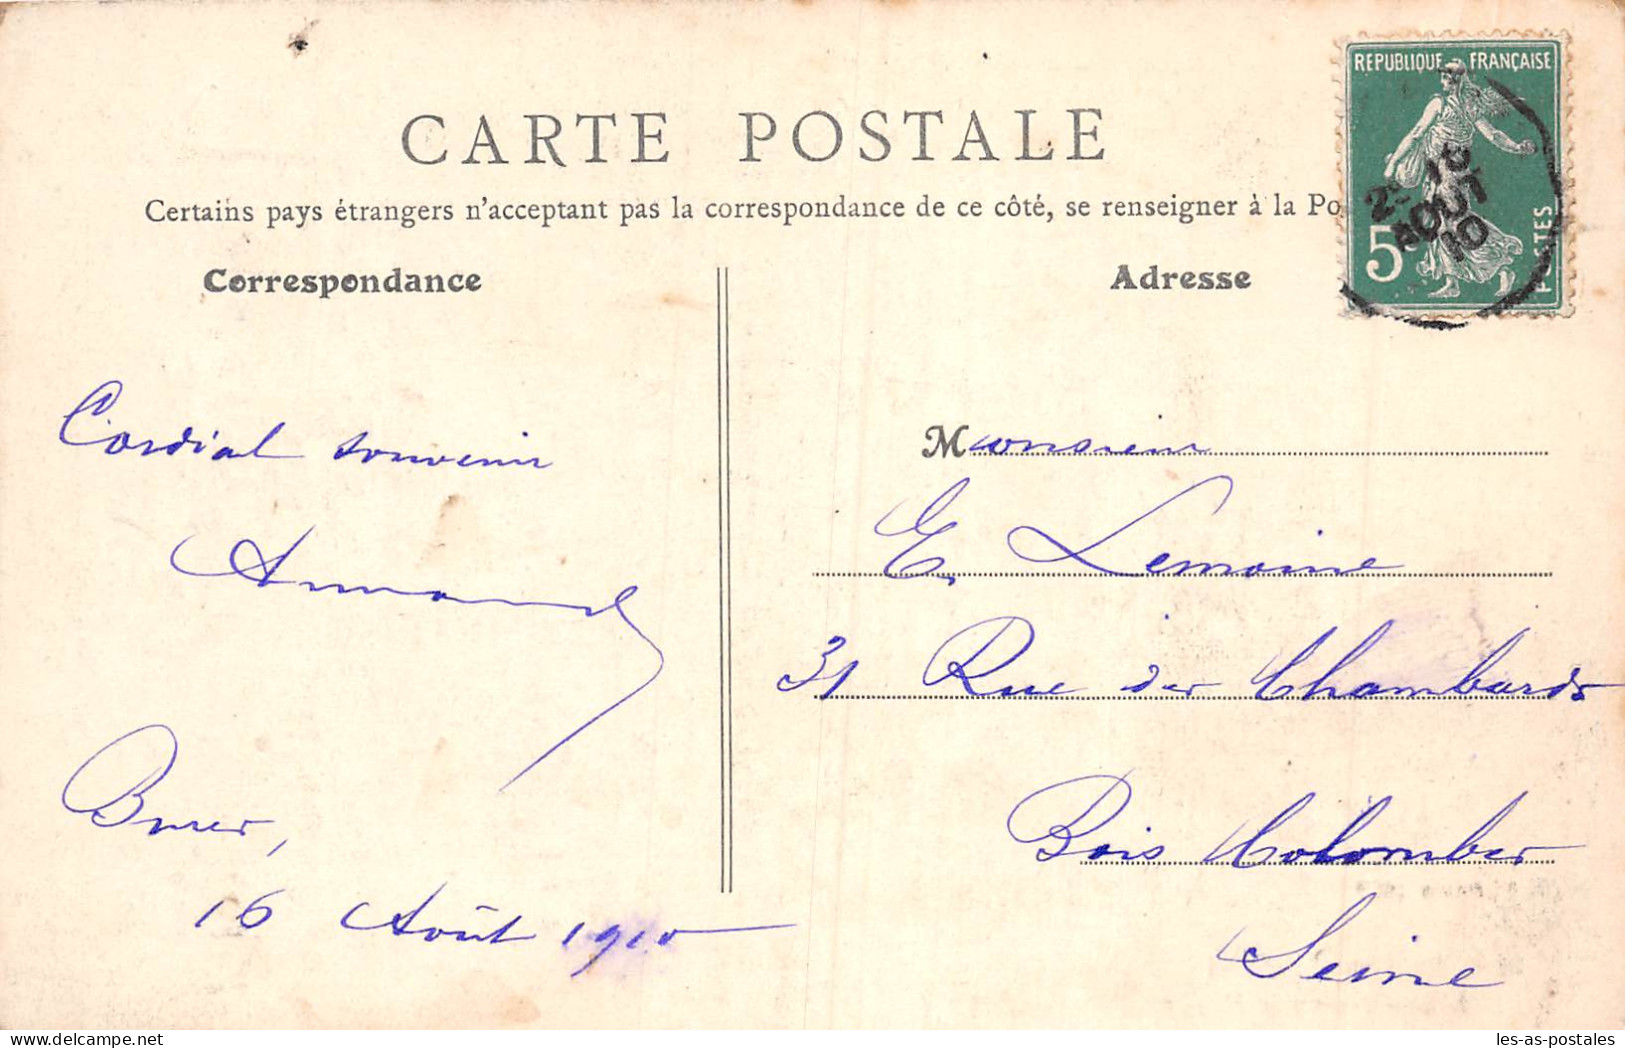 REPUBLIQUE FRANÇAISE
5
POSTES
AOUT
10
CARTE POSTALE
Certains pays étrangers n'acceptant pas la correspondance de ce côté, se renseigner à la Po
Correspondance
Cordial souvenir
Armand
16 Août 1910
Adresse
Monsieur
E. Lemoine
31 Rue des Chambards
Bois Colombes
Seine
les-as-postales